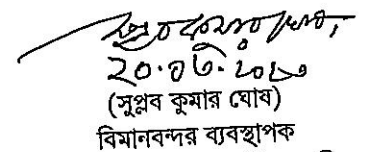 ২০.০৬.২০১৩
(সুপ্লব কুমার ঘোষ)
বিমানবন্দর ব্যবস্থাপক